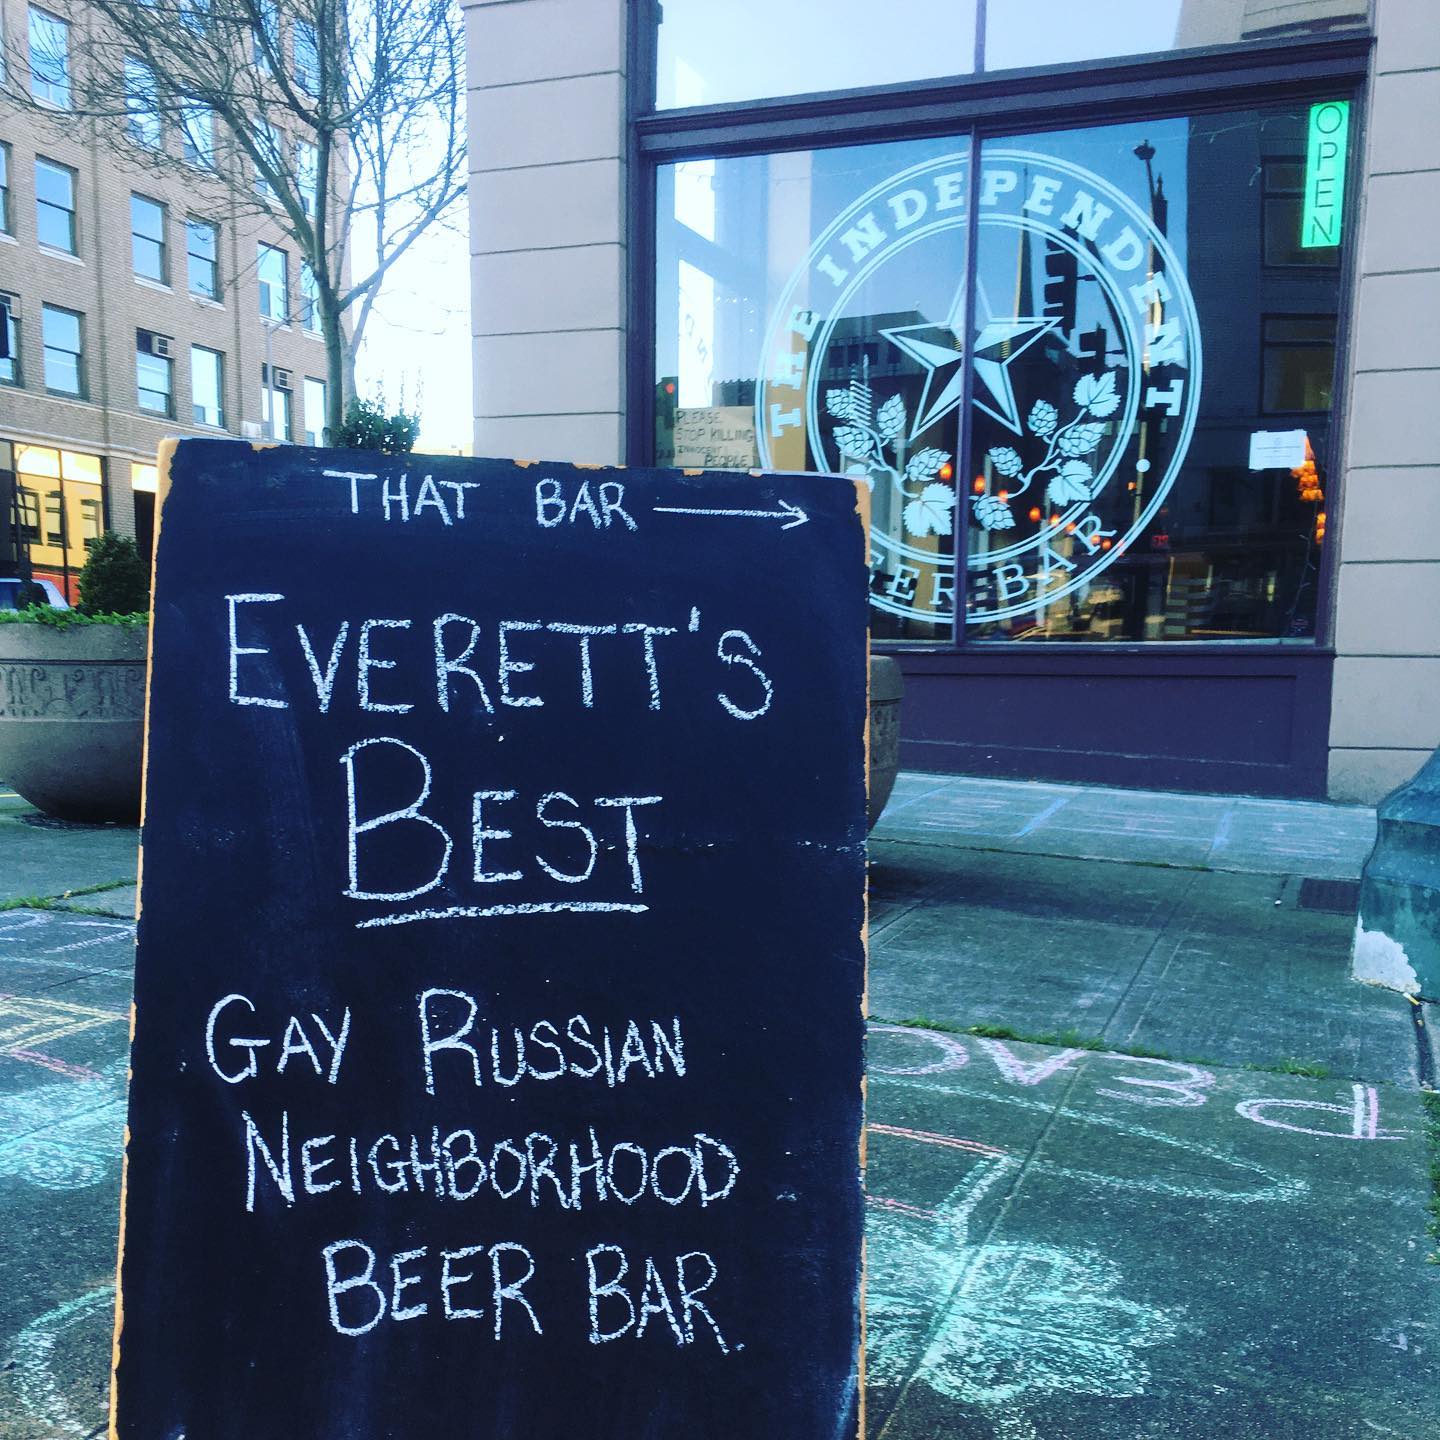 THAT BAR →
EVERETT'S
BEST
GAY RUSSIAN
NEIGHBORHOOD
BEER BAR
THE INDEPENDENT
BEER BAR
OPEN
PLEASE
STOP KILLING
INNOCENT
PEOPLE
PEAC